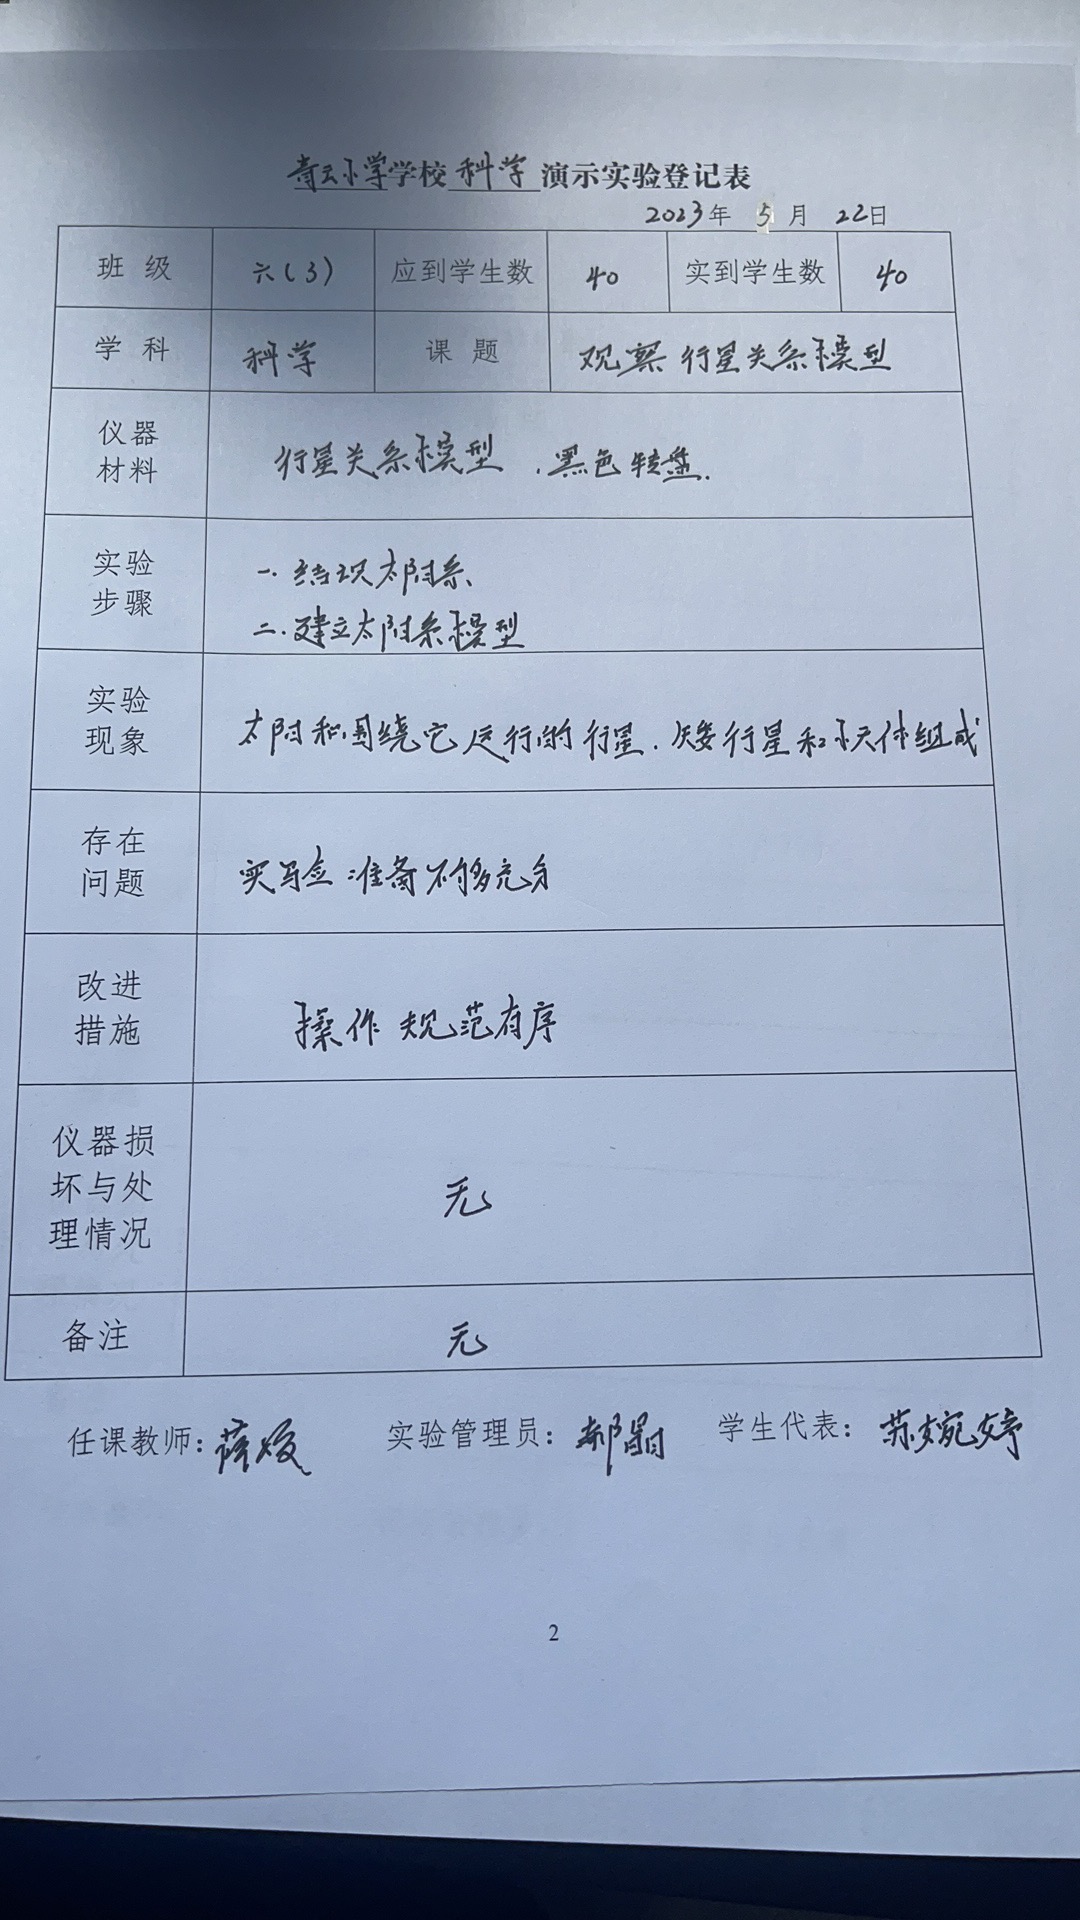 小学学校 科学 演示实验登记表
2023年 5月 22日
班级 六(3) 应到学生数 40 实到学生数 40
学科 科学 课题 观察行星关系模型
仪器
材料
行星关系模型、黑色转盘.
实验
步骤
一.结识太阳系
二.建立太阳系模型
实验
现象
太阳和围绕它运行的行星、矮行星和小天体组成
存在
问题
实验准备不够充分
改进
措施
操作规范有序
仪器损
坏与处
理情况
无
备注 无
任课教师:薛 实验管理员:郝晶 学生代表:苏婉婷
2